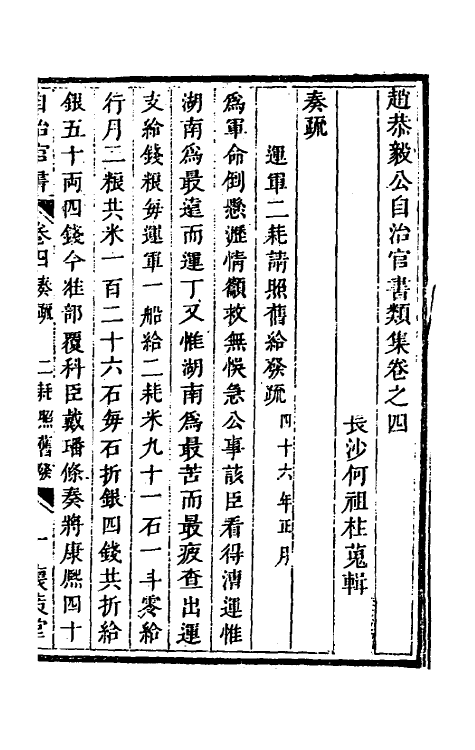 趙恭毅公自治官書類集卷之四
長沙何祖柱蒐輯
奏疏
運軍二耗請照舊給發疏 四十六年正月
爲軍命倒懸瀝情籲救無悞急公事該臣看得漕運惟
湖南爲最遠而運丁又惟湖南爲最苦而最疲查出運
支給錢糧每運軍一船給二耗米九十一石一斗零給
行月二糧共米一百二十六石每石折銀四錢共折給
銀五十兩四錢今准部覆科臣戴璠條奏將康熙四十
自治官書 卷四奏疏 二耗照舊發 一 懷策堂